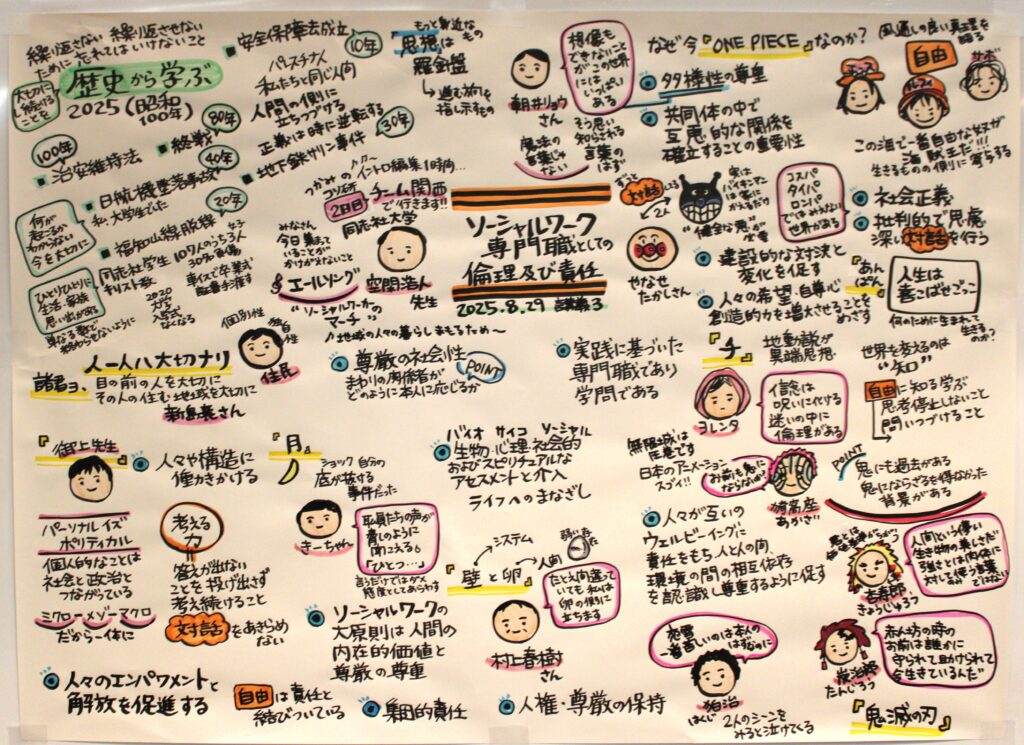 繰り返さない 繰り返させない
ために 忘れてはいけないこと
歴史から学ぶ
大切に
し続ける
ことを
2025(昭和
100年)
100年
80年
治安維持法
終戦
40年
日航機墜落事故
私、大学生でした
20年
福知山線脱線
同志社学生
キリスト教
107人のうち3人
何が
起こるか
わからない
今を大切に
ひとりひとりに
生活・家族
思い出がある
単なる数で
終わらせないように
2020
入学式
なくなる
車イスで卒業式
安全保障法成立
10年
パレスチナ人
私たちと同じ人間
人間の側に
立ちつづける
正義は時に逆転する
地下鉄サリン事件
30年
もっと身近な
思想はもの
羅針盤
進む方向を
指し示すもの
つかみのイントロ編集1時間…
2日目
チーム関西
で行きます!!
同志社大学
みなさん
今日集まって
いることが
かけがえない
エールソング
空閑浩人
先生
"ソーシャルワーカーの
マーチ"
地域の人々の暮らしまもるため~
朝井リョウ
さん
想像も
できないこと
がこの世界
にはいっぱい
ある
そう思い
知らされる
言葉の
はず
魔法の
言葉じゃ
ない
ソーシャルワーク
専門職としての
倫理及び責任
2025.8.29 講義3
なぜ今『ONE PIECE』なのか?
風通しの良い真理を
語る
自由
ルフィ
サボ
多様性の尊重
共同体の中で
互恵的な関係を
確立することの重要性
この海で一番自由な奴が
海賊王だ!!!
生きるものの側に寄与する
ずっと
対話
2人
実は
バイキンマン
"健全な悪"が
必要
やなせ
たかしさん
コスパ
タイパ
ロンパ
ではみえない
世界がある
社会正義
批判的で思慮
深い対話を行う
建設的な対決と
変化を促す
人々の希望・自尊心
創造的力を増大させることを
めざす
あん
ぱん
人生は
喜こばせごっこ
何のために生まれて
生きるのか?
人一人ハ大切ナリ
個別性
独自性
住民
諸君ヨ、目の前の人を大切に
その人の住む地域を大切に
新島襄さん
尊厳の社会性
まわりの関係者が
どのように本人に応じるか
POINT
実践に基づいた
専門職であり
学問である
『チ』
地動説が
異端思想
世界を変えるのは
"知"
ヨレンタ
信念は
呪いに化ける
迷いの中に
倫理がある
自由に知る学ぶ
思考停止しないこと
問いつづけること
『御上先生』
人々や構造に
働きかける
パーソナル イズ
ポリティカル
個人的なことは
社会と政治と
つながっている
ミクロ-メゾ-マクロ
だから一体に
考える
力
答えが出ない
ことを投げ出さず
考え続けること
対話をあきらめ
ない
『月』
ショック 自分の
底が抜ける
事件だった
きーちゃん
職員たちの声が
脅しのように
聞こえる。
「ひとつ…」
言うだけではダメ
態度としてあらわす
バイオ サイコ ソーシャル
生物・心理・社会的
およびスピリチュアルな
アセスメントと介入
ライフへのまなざし
無限城は
圧巻です
日本のアニメーション
スゴイ!!
お前も鬼に
ならないか?
猗窩座
あかざ
POINT
鬼にも過去がある
鬼にならざるを得なかった
背景がある
人々が互いの
ウェルビーイングに
責任をもち 人と人の間、
環境の間の相互依存
を認識し尊重するように促す
システム
弱い存在
人間
『壁と卵』
たとえ間違って
いても私は
卵の側に
立ちます
村上春樹
さん
ソーシャルワークの
大原則は人間の
内在的価値と
尊厳の尊重
杏寿郎
きょうじゅろう
人間という儚い
生き物の美しさだ
強さとは肉体に
対してのみ使う言葉
ではない
炭治郎
たんじろう
赤ん坊の時の
お前は誰かに
守られて助けられて
今生きているんだ
一番苦しいのは本人の
はずなのに
狛治
はくじ
2人のシーンを
みると泣けてくる
『鬼滅の刃』
人々のエンパワメントと
解放を促進する
自由は責任と
結びついている
集団的責任
人権・尊厳の保持